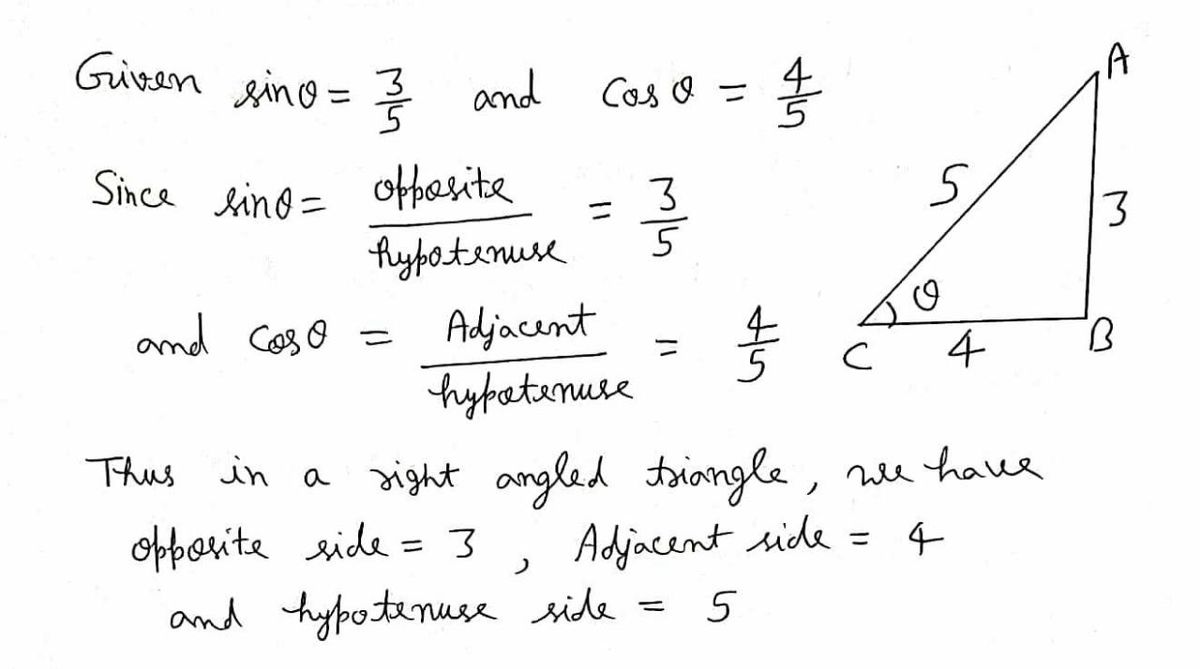 Given sinθ = 3/5 and Cos θ = 4/5
A
Since sinθ = opposite/hypotenuse = 3/5
5
3
θ
and Cosθ = Adjacent/hypotenuse = 4/5
C 4 B
Thus in a right angled triangle, we have
opposite side = 3 , Adjacent side = 4
and hypotenuse side = 5